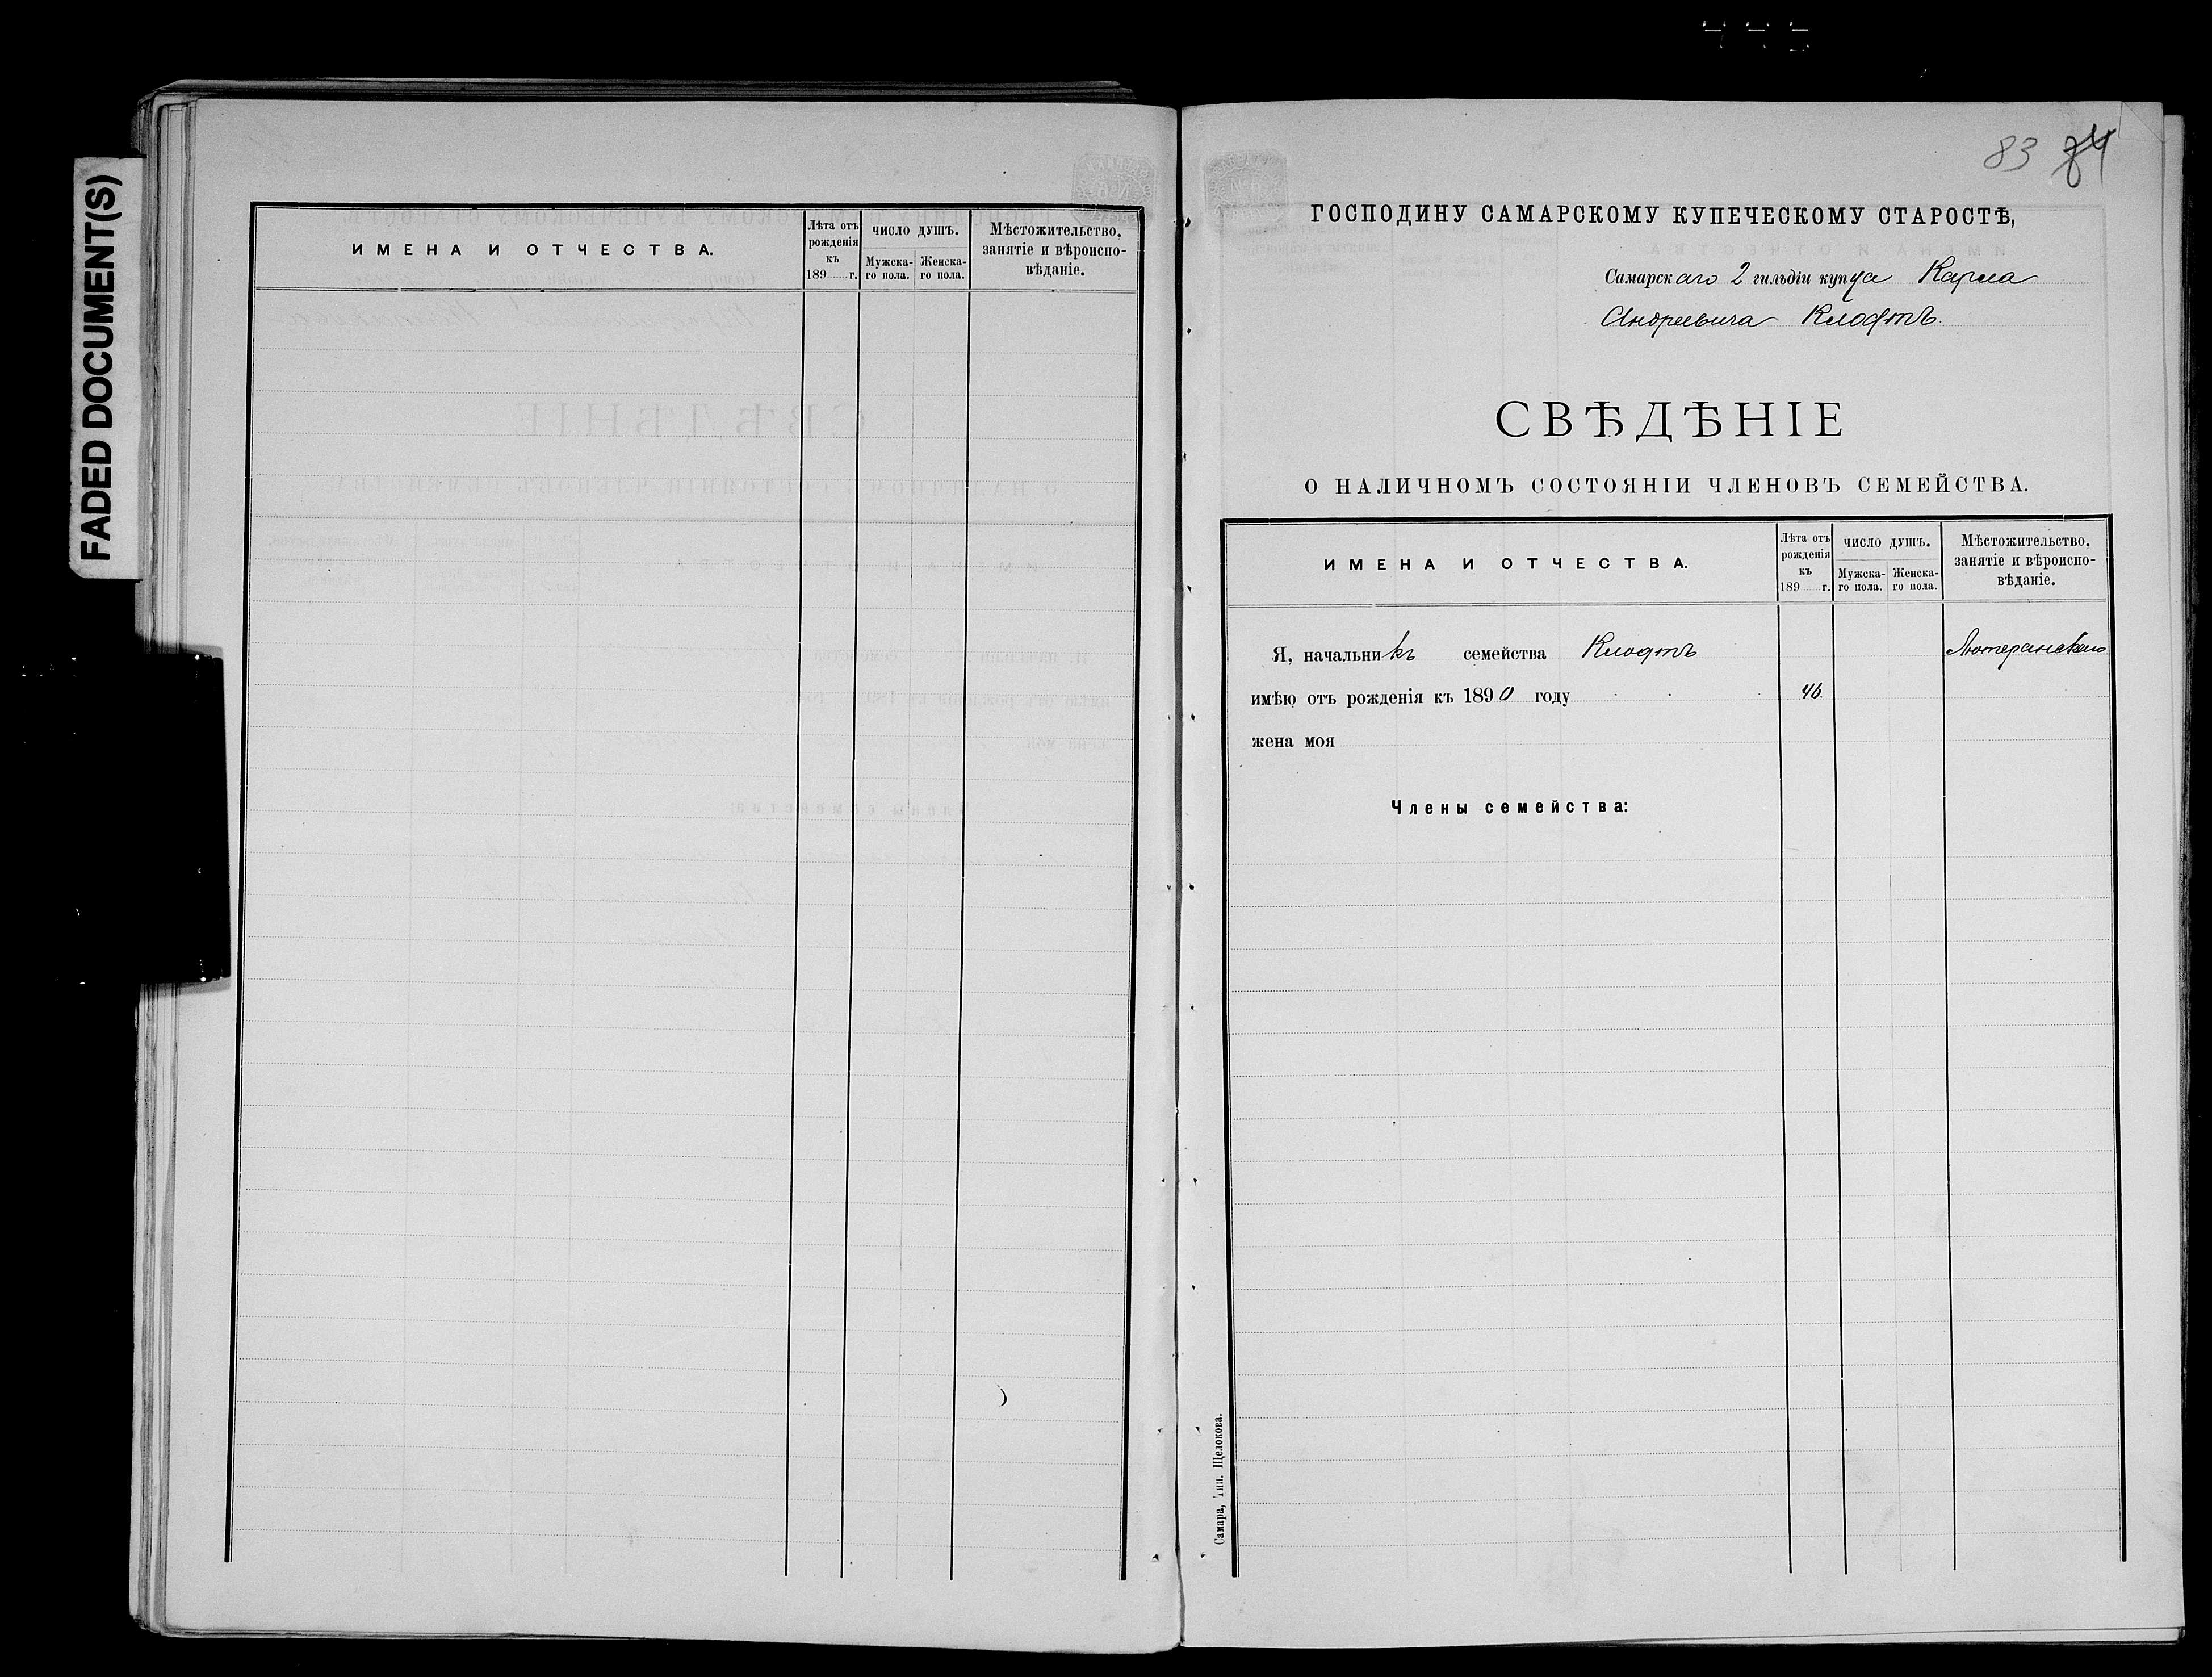 FADED DOCUMENT(S)
ИМЕНА И ОТЧЕСТВА.
Лѣта отъ рожденія къ 189 г.
ЧИСЛО ДУШЪ.
Мужска-го пола.
Женска-го пола.
Мѣстожительство, занятіе и вѣроиспо-вѣданіе.
83 84
ГОСПОДИНУ САМАРСКОМУ КУПЕЧЕСКОМУ СТАРОСТѢ,
Самарскаго 2 гильдіи купца Карла
Андреевича Клофтъ.
СВѢДѢНІЕ
О НАЛИЧНОМЪ СОСТОЯНІИ ЧЛЕНОВЪ СЕМЕЙСТВА.
ИМЕНА И ОТЧЕСТВА.
Лѣта отъ рожденія къ 189 г.
ЧИСЛО ДУШЪ.
Мужска-го пола.
Женска-го пола.
Мѣстожительство, занятіе и вѣроиспо-вѣданіе.
Я, начальникъ семейства Клофтъ Лютеранскаго
имѣю отъ рожденія къ 1890 году 46
жена моя
Члены семейства:
Самара, Тип. Щелокова.